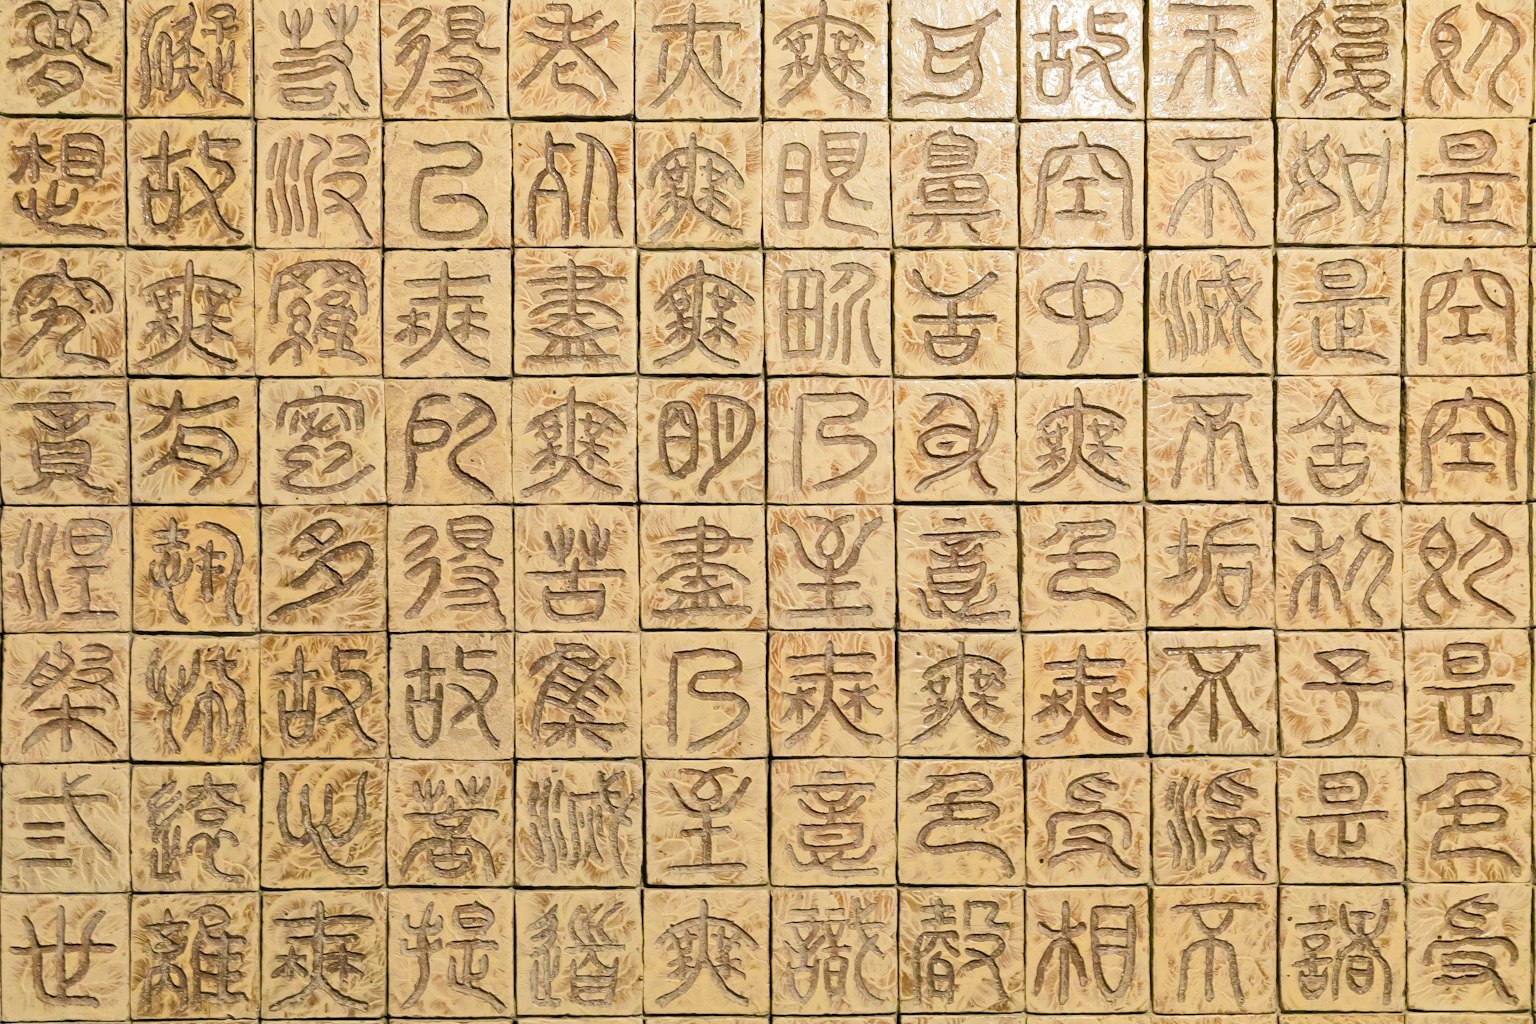 即是空空即是色受
復如是舍利子是諸
生不滅不垢不淨不
故空中無色無受相
耳鼻舌身意無色聲
無眼界乃至無意識
亦無無明盡乃至無
老死盡無苦集滅道
得以無所得故菩提
若波羅蜜多故心無
礙故無有恐怖遠離
夢想究竟涅槃弎世